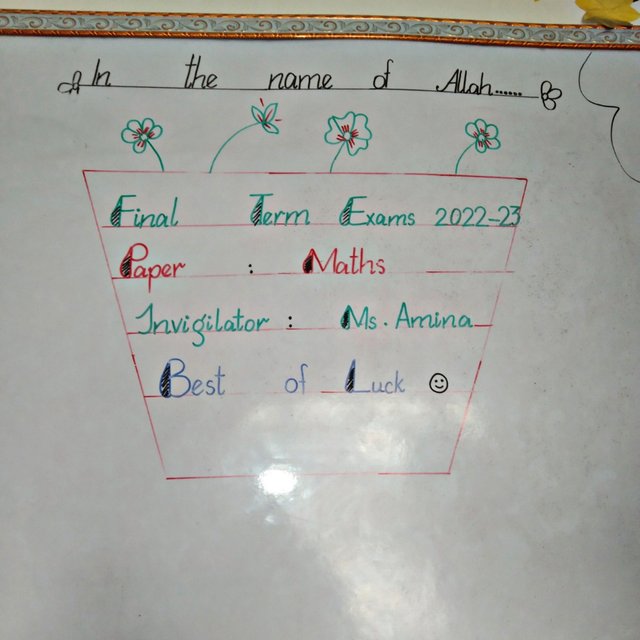 In the name of Allah......
Final Term Exams 2022-23
Paper : Maths
Invigilator : Ms. Amina
Best of Luck ☺